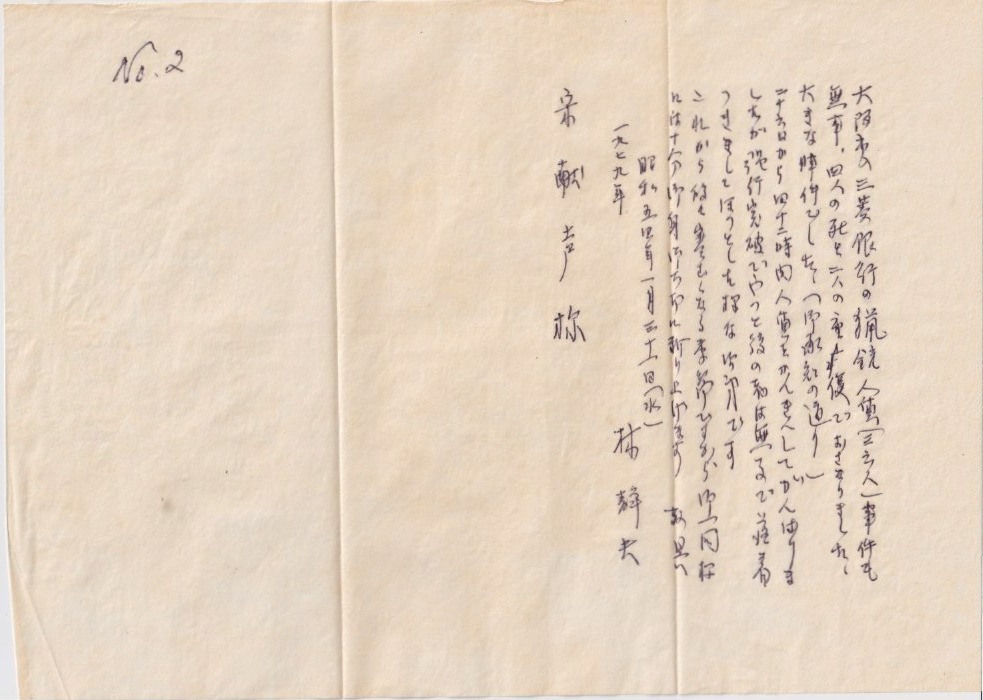 No.2
大阪市の三菱銀行の猟銃人質(三十人)事件も
無事、四人の死と二人の重 で おさまりました、
大きな事件でした(御承知の通り)
二十六日から四十二時間人質をかんきんしてがんばりま
したが強行突破でやっと後の者は無事で落着
つきましてほっとした様な御前月です
これから段々 寒むくなる季節ですから 御一同様
には十分御身御大切に祈り上げます 敬具
昭和五四年一月三十一日(水)
一九七九年
林
宋 献 様